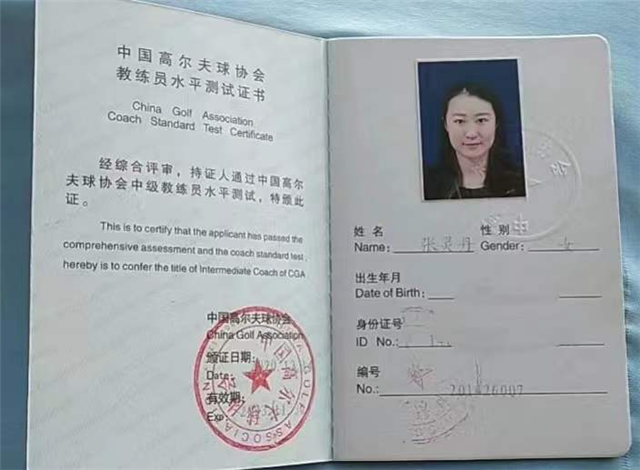 中国高尔夫球协会
教练员水平测试证书
China Golf Association
Coach Standard Test Certificate
经综合评审，持证人通过中国高尔
夫球协会中级教练员水平测试，特颁此
证。
This is to certify that the applicant has passed the
comprehensive assessment and the coach standard test,
hereby is to confer the title of Intermediate Coach of CGA
中国高尔夫球协会
China Golf Association
颁证日期：
Date:
有效期：
Exp:
姓名 性别
Name: 张灵丹 Gender: 女
出生年月
Date of Birth:
身份证号
ID No.:
编号
No.: 201426007